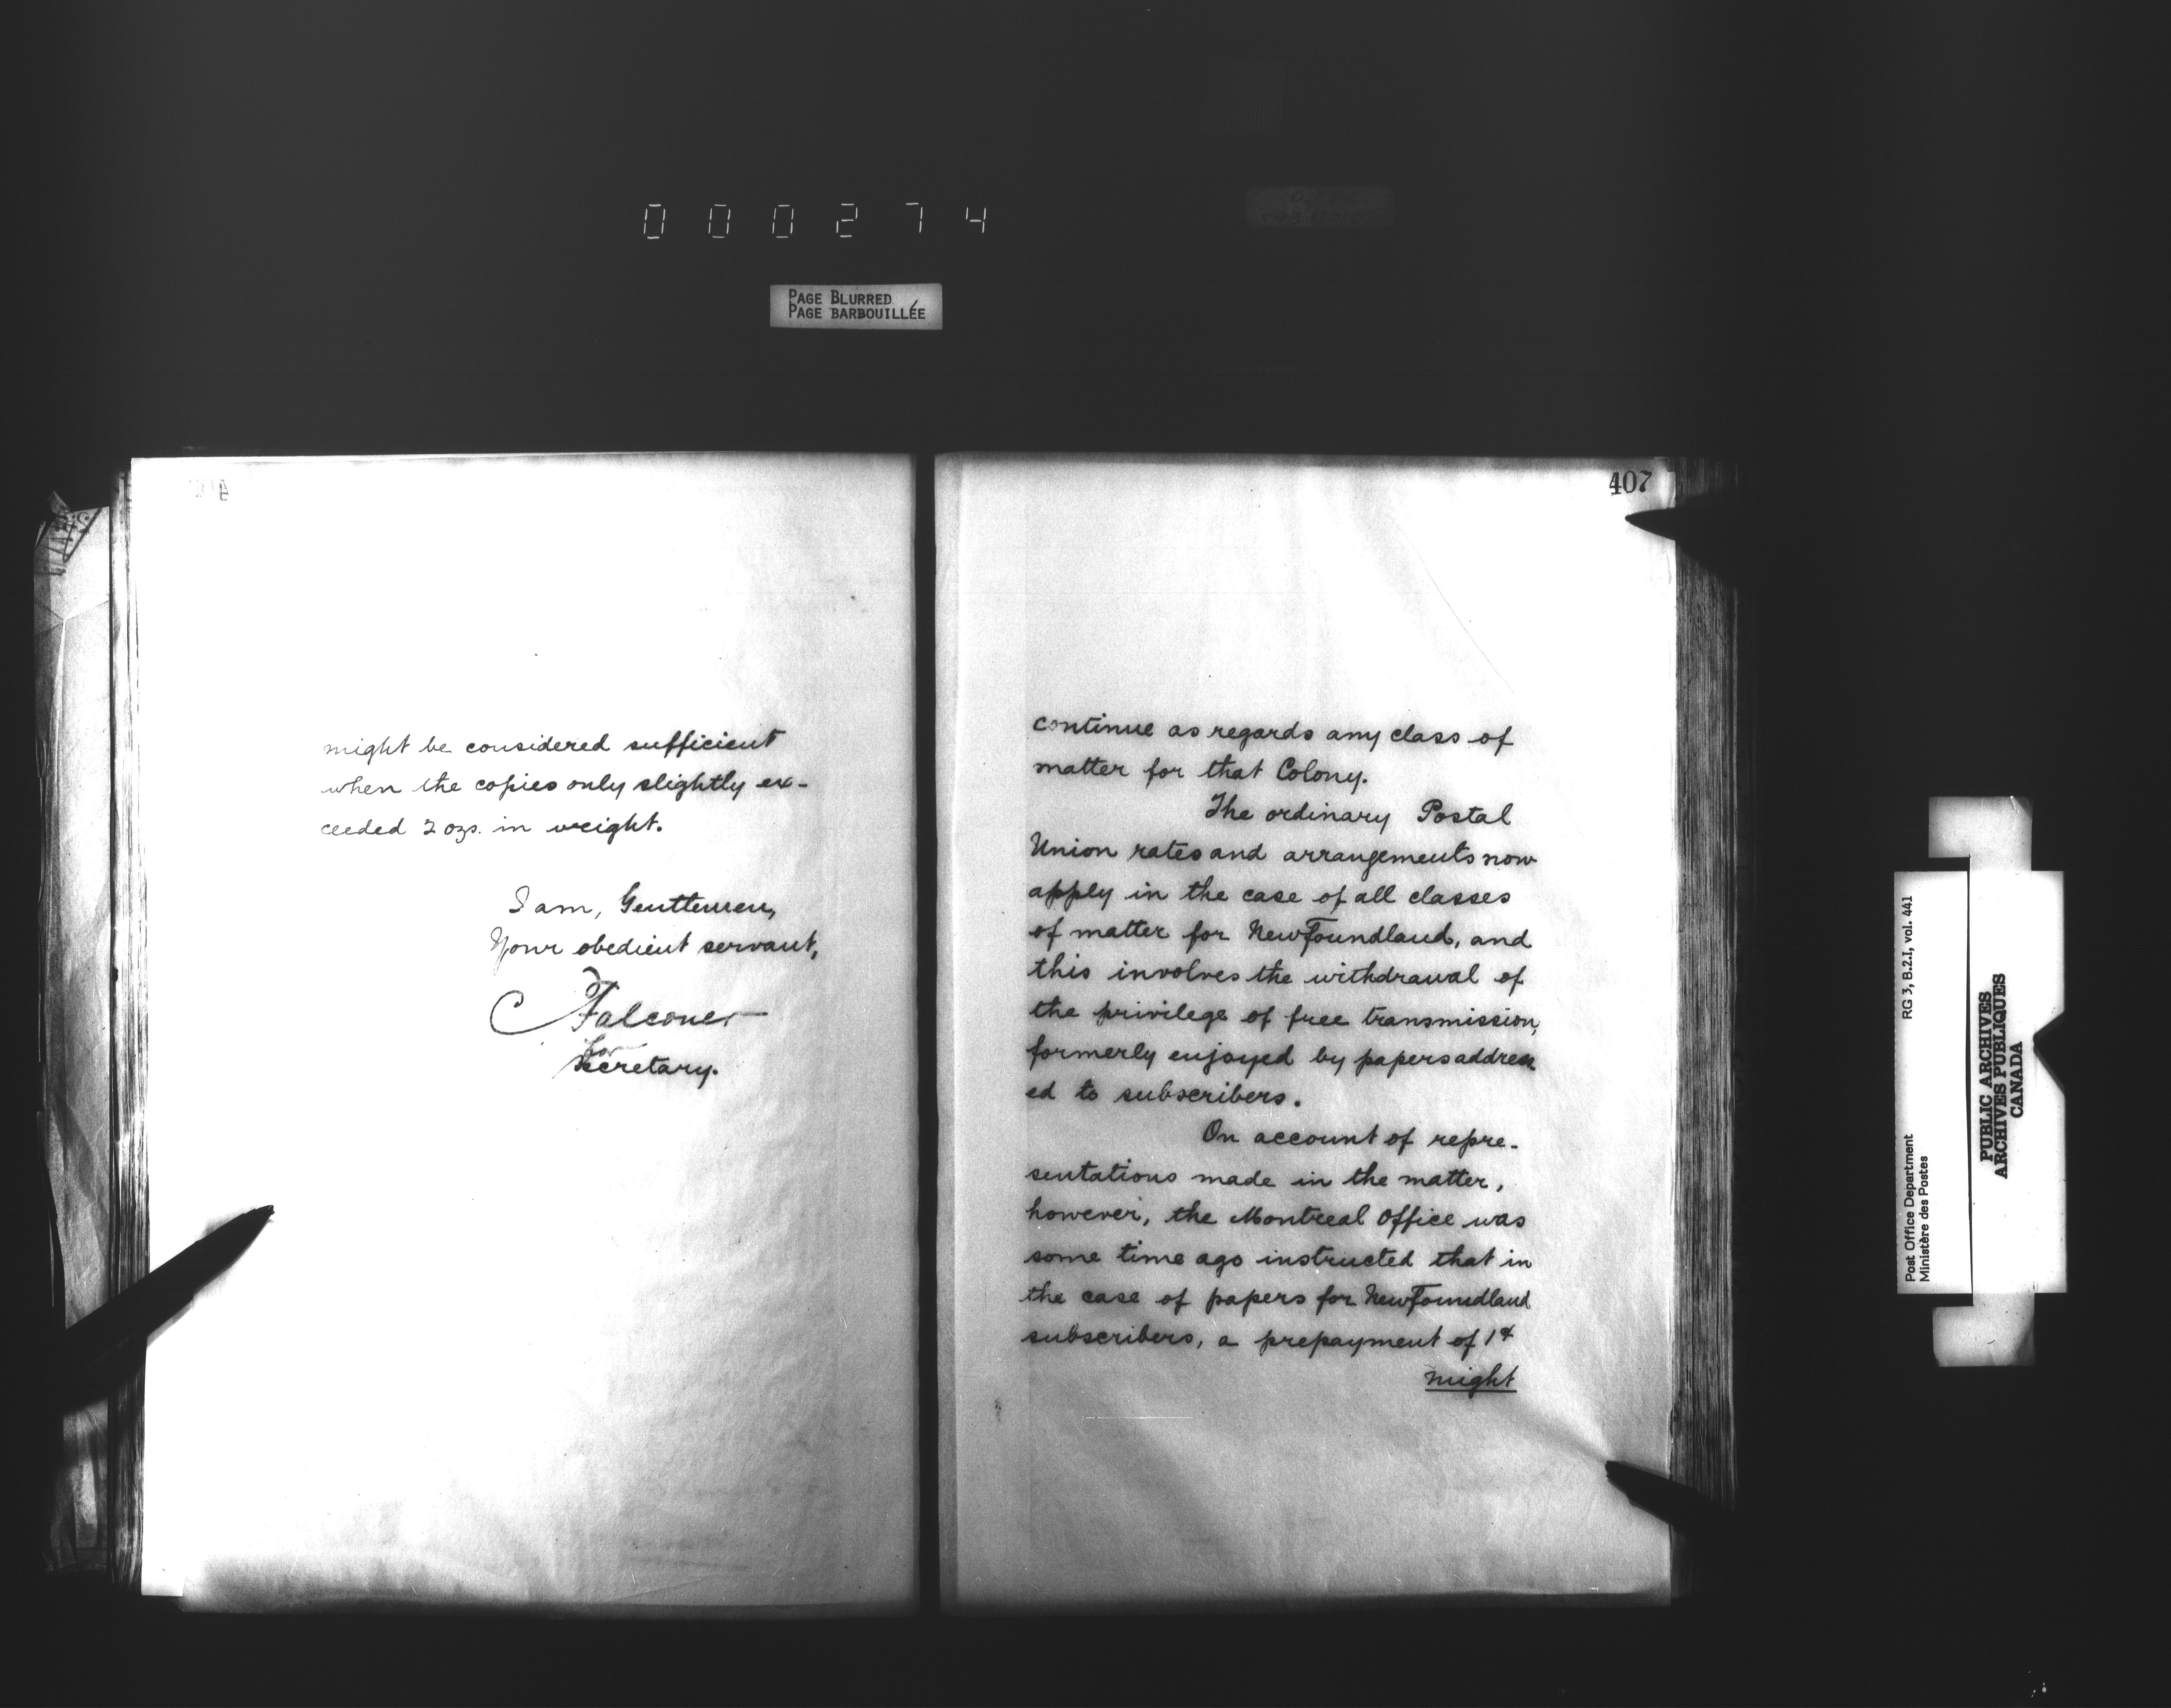 000274
PAGE BLURRED
PAGE BARBOUILLÉE
might be considered sufficient
when the copies only slightly ex-
ceeded 2 ozs. in weight.
I am, Gentlemen,
Your obedient servant,
C Falconer
for
Secretary.
407
continue as regards any class of
matter for that Colony.
The ordinary Postal
Union rates and arrangements now
apply in the case of all classes
of matter for Newfoundland, and
this involves the withdrawal of
the privilege of free transmission,
formerly enjoyed by papers address
ed to subscribers.
On account of repre-
sentations made in the matter,
however, the Montreal Office was
some time ago instructed that in
the case of papers for Newfoundland
subscribers, a prepayment of 1¢
might
Post Office Department
Ministère des Postes
RG 3, B.2.I, vol. 441
PUBLIC ARCHIVES
ARCHIVES PUBLIQUES
CANADA